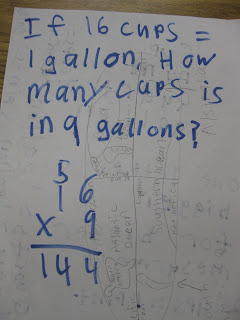 If 16 cups =
1 gallon, How
many cups is
in 9 gallons?
5
16
X 9
144